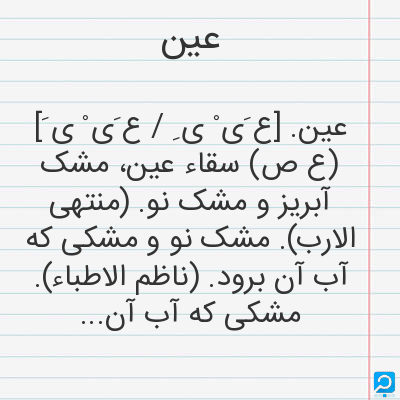 عین
عین. [ع َی ْ ی ِ / ع َی ْ ی َ]
(ع ص) سقاء عین، مشک
آبریز و مشک نو. (منتهی
الارب). مشک نو و مشکی که
آب آن برود. (ناظم الاطباء).
مشکی که آب آن...